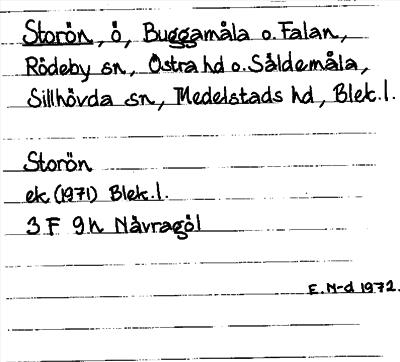 Storön, ö, Buggamåla o. Falan,
Rödeby sn, Östra hd o. Såldemåla,
Sillhövda sn, Medelstads hd, Blek. l.
Storön
ek (1971) Blek. l.
3 F 9 h Nävragöl
E. N-d 1972.